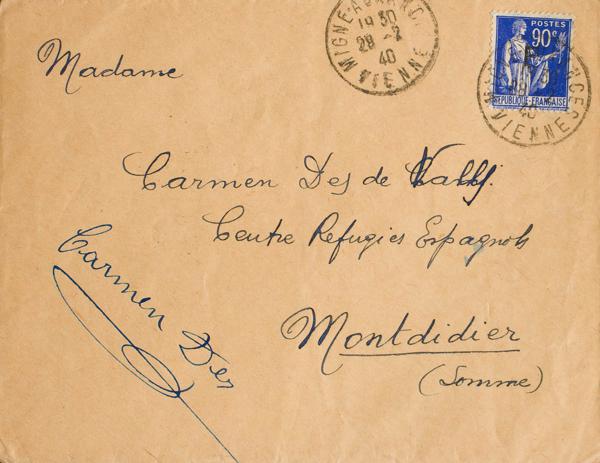 MIGNE-AUXANCES
18 30
28 -2
40
VIENNE
POSTES
90c
REPUBLIQUE-FRANÇAISE
VIENNE
Madame
Carmen Des de Valls.
Centre Refugies Espagnols
Montdidier
(Somme)
Carmen Des